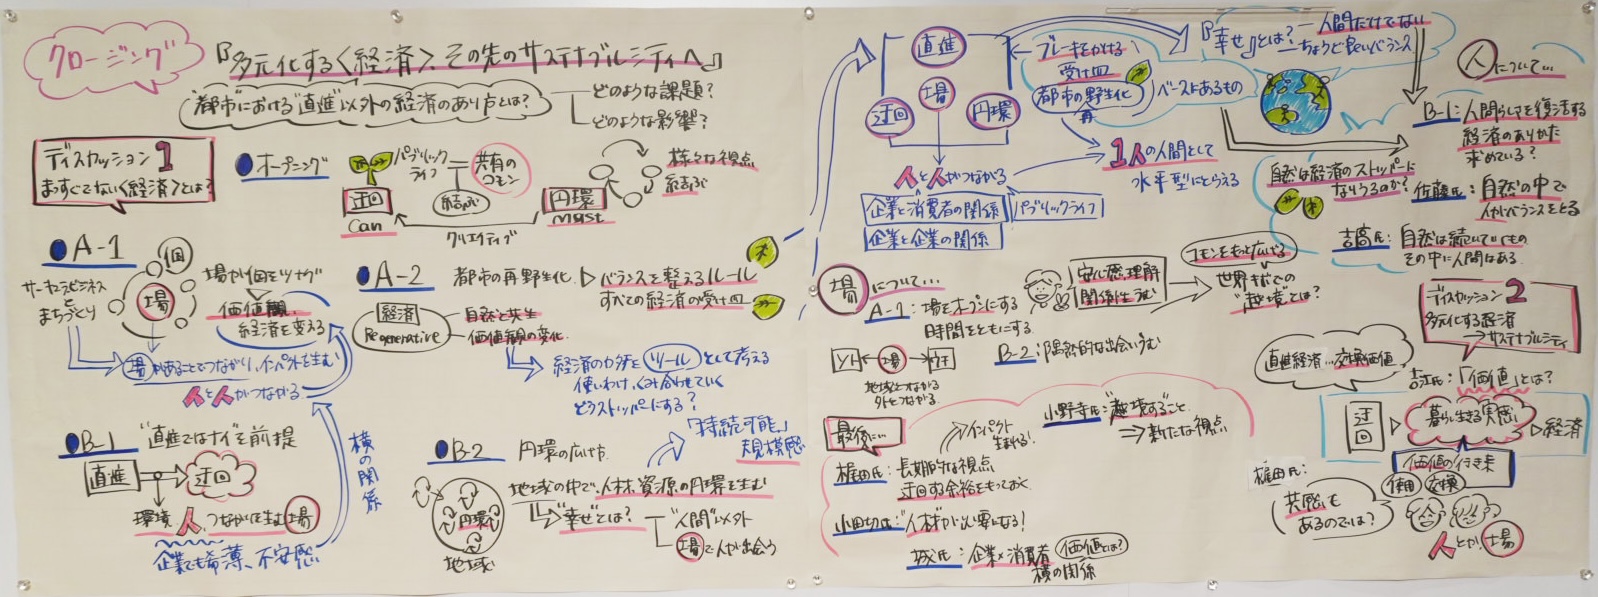 クロージング
『多元化する〈経済〉、その先のサステナブルシティへ』
"都市"における"直進"以外の経済のあり方とは?
どのような課題?
どのような影響?
ディスカッション1
まっすぐでない〈経済〉とは?
オープニング
パブリック
ライフ
共有の
コモン
結び
迂回
can
クリエイティブ
円環
must
様々な視点
結ぶ
A-1
サーキュラービジネス
と
まちづくり
個
場
場が個をツナグ
価値観、
経済を変える
場があることでつながり、インパクトを生む
人と人がつながる
A-2
都市の再野生化
バランスを整えるルール
すべての経済の受け皿
経済
Regenerative
自然と共生
価値観の変化
経済のカタチをツールとして考える
使いわけ、くみ合わせていく
どうストッパーにする?
B-1
"直進ではナイ"を前提
直進
迂回
環境、人、つながりを生む場
企業でも希薄、不安感
横の関係
B-2
円環の広げ方
円環
地域
地域の中で、人材、資源の円環を生む
"幸せ"とは?
"人間"以外
場で人が出会う
「持続可能」
規模感
直進
場
迂回
円環
人と人がつながる
企業と消費者の関係
パブリックライフ
企業と企業の関係
ブレーキをかける
受け皿
都市の再野生化
ベースにあるもの
1人の人間として
水平型にとらえる
『幸せ』とは?
人間だけでない
ちょうど良いバランス
人について…
B-1:人間らしさを復活する
経済のありかた
求めている?
自然は経済のストッパーに
なりうるのか?
佐藤氏:自然の中で
人がバランスをとる
吉高氏:自然は続いていくもの
その中に人間はある
場について…
A-1:場をオープンにする
時間をともにする
安心感、理解
関係性うむ
コモンをもっと広げる
世界規模での
"越境"とは?
場
地域とつながる
外とつながる
B-2:偶然的な出会いうむ
最後に…
インパクト
生まれる!
梶田氏:長期的な視点
迂回する余裕をもっておく
小野寺氏:越境すること
新たな視点
小田切氏:"人材"が必要になる!
城氏:企業×消費者
価値とは?
横の関係
ディスカッション2
多元化する経済
サステナブルシティ
直進経済…交換価値
吉江氏:「価値」とは?
迂回
暮らし生きる実感
経済
価値の行き来
使用
交換
梶田氏:
共感も
あるのでは?
人とか、場